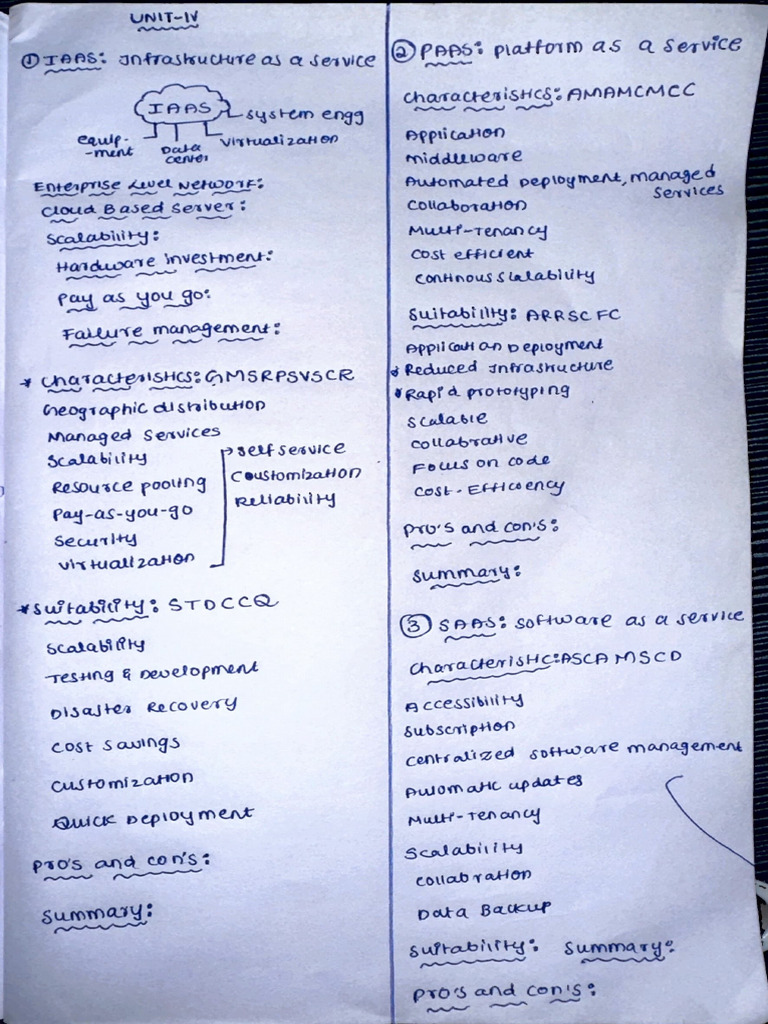 UNIT-IV
① IAAS: Infrastructure as a service
IAAS
system engg
equip-
-ment
Data
center
Virtualization
Enterprise Level Network:
Cloud Based Server:
Scalability:
Hardware investment:
Pay as you go:
Failure management:
* Characteristics: GMSRPSVSCR
Geographic distribution
Managed Services
Scalability
Resource pooling
Pay-as-you-go
Security
Virtualization
Self service
Coustomization
Reliability
* Suitability: STDCCQ
Scalability
Testing & Development
Disaster Recovery
Cost Savings
Customization
Quick Deployment
Pro's and con's:
Summary:
② PAAS: Platform as a service
Characteristics: AMAMCMCC
Application
Middleware
Automated Deployment, managed
Services
Collaboration
Multi-Tenancy
Cost efficient
Continous Slalability
Suitability: ARRSCFC
Application Deployment
Reduced Infrastructure
Rapid prototyping
Scalable
Collabrative
Focus on code
Cost-Efficency
Pro's and con's:
Summary:
③ SAAS: Software as a service
Characteristic: ASCAMSCD
Accessibility
Subscription
Centralized software management
Automatic updates
Multi-Tenancy
Scalability
Collabration
Data Backup
Suitability: Summary:
Pro's and con's: